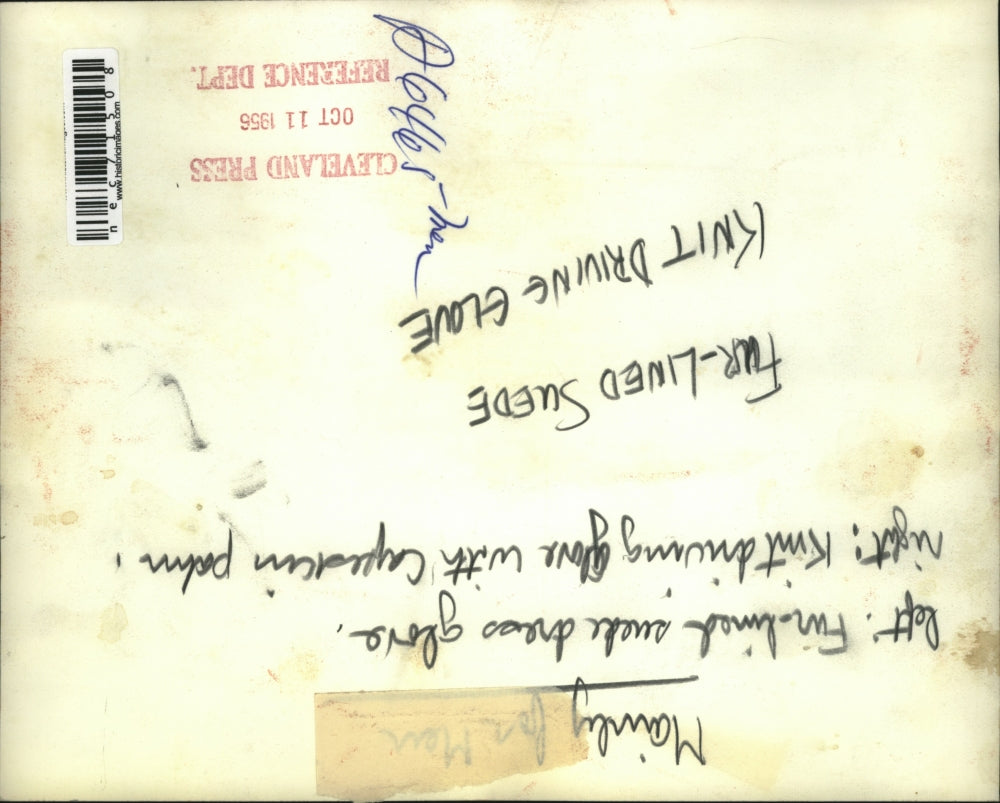 Mainly for Men
left: Fur-lined suede dress glove.
right: Knit driving glove with Capeskin palm.
FUR-LINED SUEDE
KNIT DRIVING GLOVE
CLEVELAND PRESS
OCT 11 1956
REFERENCE DEPT.
nec71508
www.historicimages.com